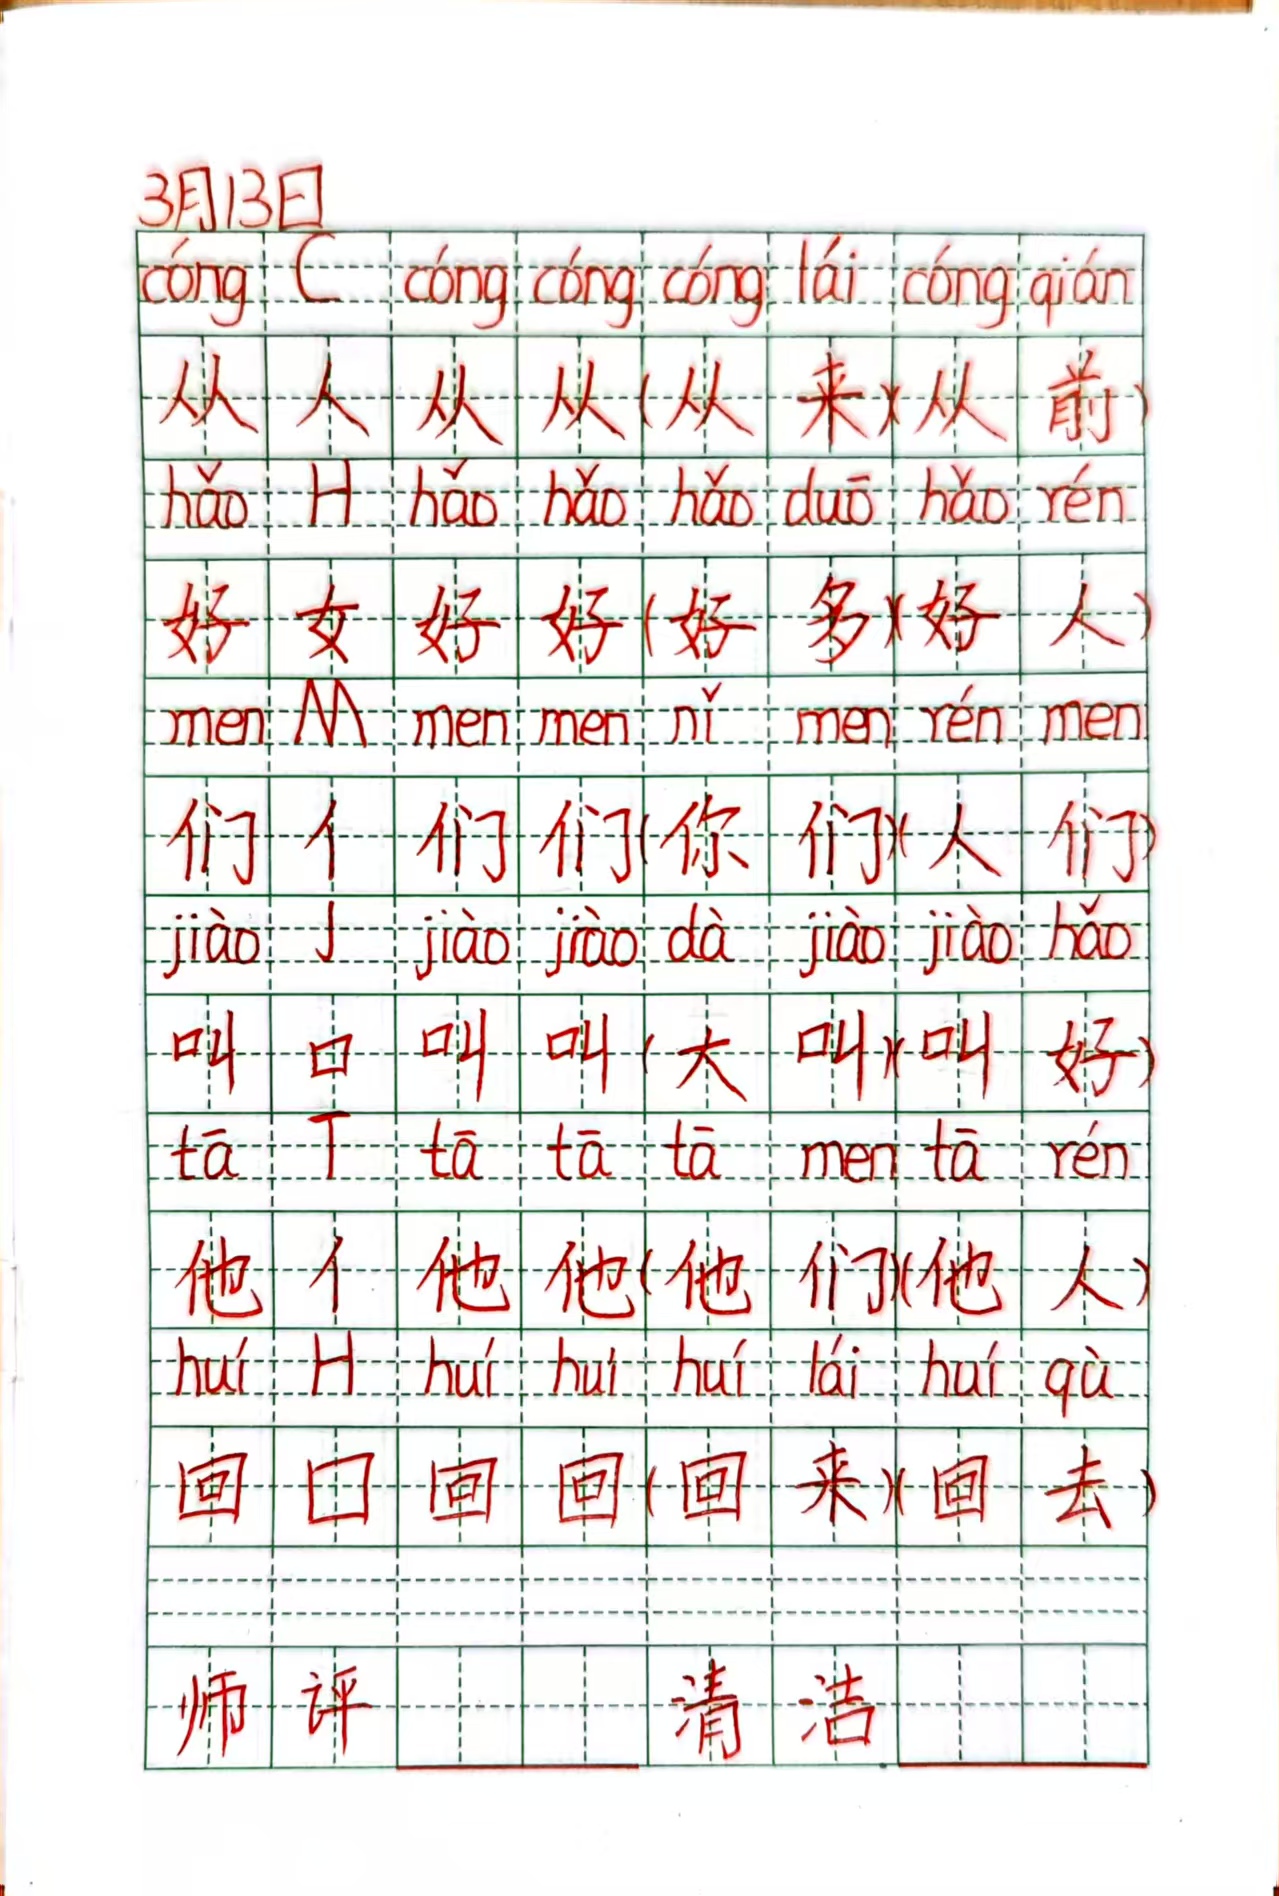 3月13日
cóng C cóng cóng cóng lái cóng qián
从 人 从 从 (从 来)(从 前)
hǎo H hǎo hǎo hǎo duō hǎo rén
好 女 好 好 (好 多)(好 人)
men M men men nǐ men rén men
们 亻 们 们 (你 们)(人 们)
jiào J jiào jiào dà jiào jiào hǎo
叫 口 叫 叫 (大 叫)(叫 好)
tā T tā tā tā men tā rén
他 亻 他 他 (他 们)(他 人)
huí H huí huí huí lái huí qù
回 囗 回 回 (回 来)(回 去)
师 评 清 洁